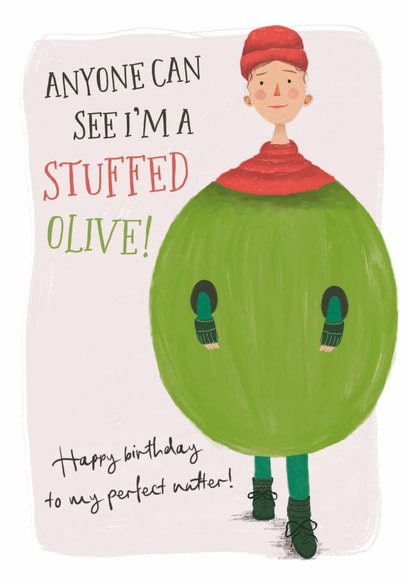 ANYONE CAN
SEE I'M A
STUFFED
OLIVE!
Happy birthday
to my perfect nutter!